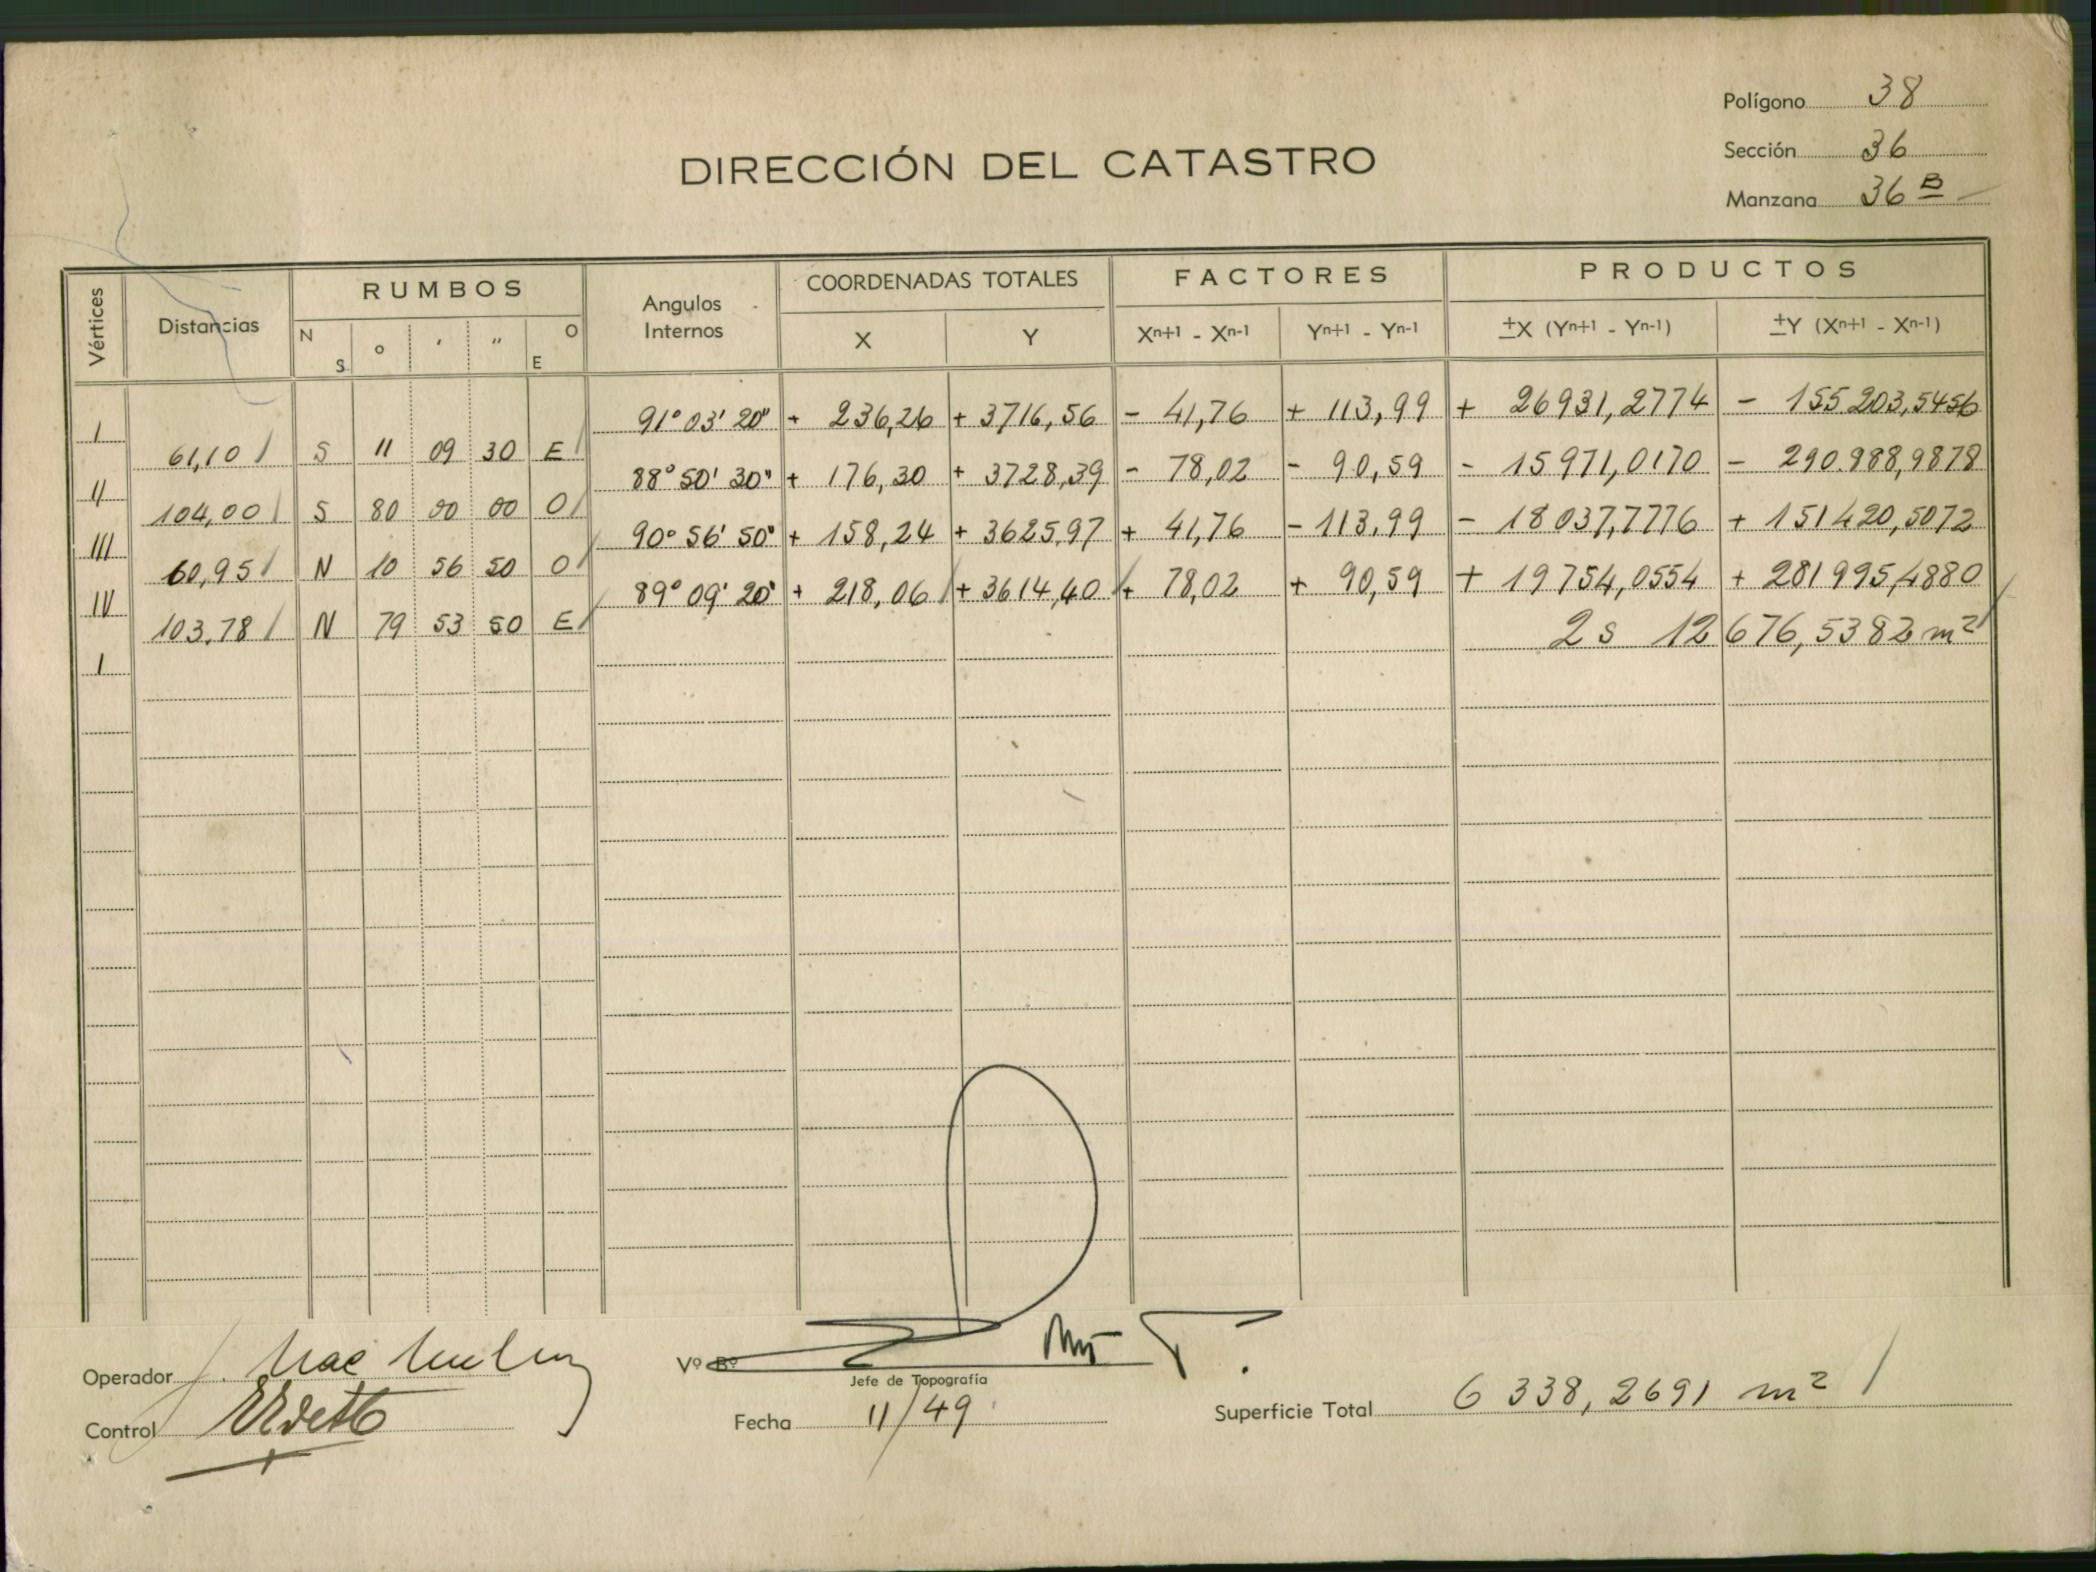 Polígono 38
Sección 36
Manzana 36 B
DIRECCIÓN DEL CATASTRO
Vértices Distancias RUMBOS Angulos Internos COORDENADAS TOTALES FACTORES PRODUCTOS
N S ° ' " O E X Y Xn+1 - Xn-1 Yn+1 - Yn-1 ±X (Yn+1 - Yn-1) ±Y (Xn+1 - Xn-1)
I 91° 03' 20" + 236,26 + 3716,56 - 41,76 + 113,99 + 26931,2774 - 155203,5456
61,10 S 11 09 30 E
II 88° 50' 30" + 176,30 + 3728,39 - 78,02 - 90,59 - 15971,0170 - 290.988,9878
104,00 S 80 00 00 O
III 90° 56' 50" + 158,24 + 3625,97 + 41,76 - 113,99 - 18037,7776 + 151420,5072
60,95 N 10 56 50 O
IV 89° 09' 20" + 218,06 + 3614,40 + 78,02 + 90,59 + 19754,0554 + 281995,4880
103,78 N 79 53 50 E
2 S 12676,5382 m²
I
Operador
Vº Bº
Jefe de Topografía
Control
Fecha 11/49
Superficie Total 6 338,2691 m²